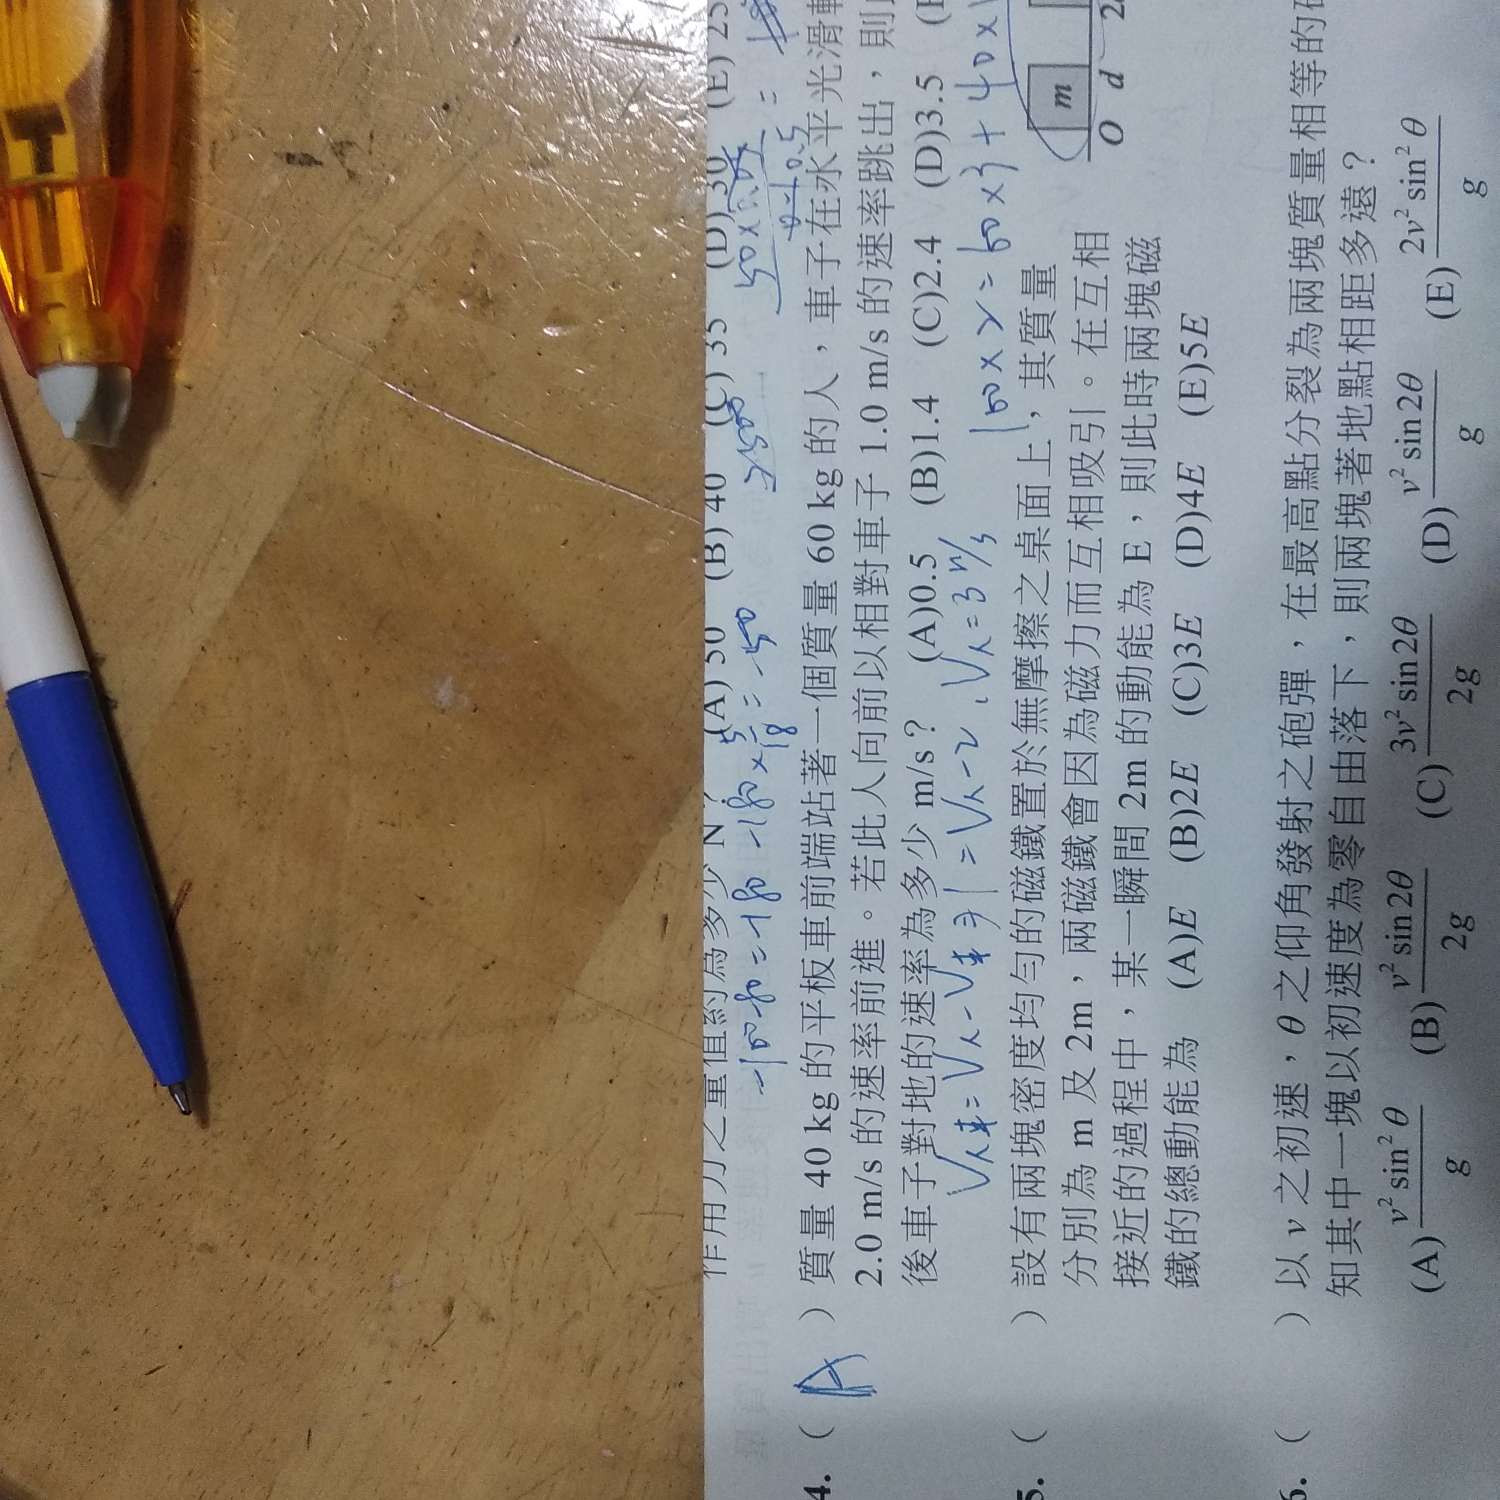 作用力之量值約為多少 N？ (A) 50 (B) 40 (C) 35 (D) 30 (E) 25
4. ( A ) 質量 40 kg 的平板車前端站著一個質量 60 kg 的人，車子在水平光滑軌
2.0 m/s 的速率前進。若此人向前以相對車子 1.0 m/s 的速率跳出，則
後車子對地的速率為多少 m/s？ (A)0.5 (B)1.4 (C)2.4 (D)3.5 (E
V人車 = V人 - V車 ⇒ 1 = V人 - 2 , V人 = 3 m/s 100 × 2 = 60 × 3 + 40 ×
5. ( ) 設有兩塊密度均勻的磁鐵置於無摩擦之桌面上，其質量
分別為 m 及 2m，兩磁鐵會因為磁力而互相吸引。在互相
接近的過程中，某一瞬間 2m 的動能為 E，則此時兩塊磁
鐵的總動能為 (A)E (B)2E (C)3E (D)4E (E)5E
m
O d
6. ( ) 以 v 之初速，θ 之仰角發射之砲彈，在最高點分裂為兩塊質量相等的
知其中一塊以初速度為零自由落下，則兩塊著地點相距多遠？
(A) v² sin² θ / g (B) v² sin 2θ / 2g (C) 3v² sin 2θ / 2g (D) v² sin 2θ / g (E) 2v² sin² θ / g